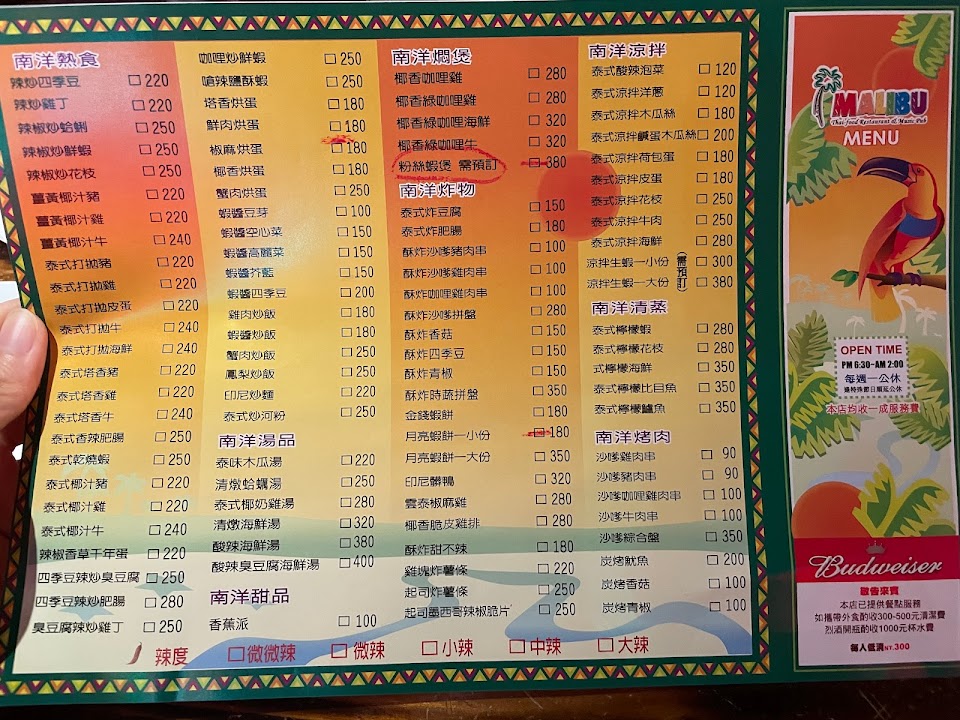 南洋熱食
辣炒四季豆 □ 220
辣炒雞丁 □ 220
辣椒炒蛤蜊 □ 250
辣椒炒鮮蝦 □ 250
辣椒炒花枝 □ 250
薑黃椰汁豬 □ 220
薑黃椰汁雞 □ 220
薑黃椰汁牛 □ 240
泰式打拋豬 □ 220
泰式打拋雞 □ 220
泰式打拋皮蛋 □ 220
泰式打拋牛 □ 240
泰式打拋海鮮 □ 240
泰式塔香豬 □ 220
泰式塔香雞 □ 220
泰式塔香牛 □ 240
泰式香辣肥腸 □ 250
泰式乾燒蝦 □ 250
泰式椰汁豬 □ 220
泰式椰汁雞 □ 220
泰式椰汁牛 □ 240
辣椒香草千年蛋 □ 220
四季豆辣炒臭豆腐 □ 250
四季豆辣炒肥腸 □ 280
臭豆腐辣炒雞丁 □ 250
咖哩炒鮮蝦 □ 250
嗆辣鹽酥蝦 □ 250
塔香烘蛋 □ 180
鮮肉烘蛋 □ 180
椒麻烘蛋 □ 180
椰香烘蛋 □ 180
蟹肉烘蛋 □ 250
蝦醬豆芽 □ 100
蝦醬空心菜 □ 150
蝦醬高麗菜 □ 150
蝦醬芥藍 □ 150
蝦醬四季豆 □ 200
雞肉炒飯 □ 180
蝦醬炒飯 □ 180
蟹肉炒飯 □ 250
鳳梨炒飯 □ 250
印尼炒麵 □ 220
泰式炒河粉 □ 250
南洋湯品
泰味木瓜湯 □ 220
清燉蛤蠣湯 □ 250
泰式椰奶雞湯 □ 280
清燉海鮮湯 □ 320
酸辣海鮮湯 □ 380
酸辣臭豆腐海鮮湯 □ 400
南洋甜品
香蕉派 □ 100
南洋燜煲
椰香咖哩雞 □ 280
椰香綠咖哩雞 □ 280
椰香綠咖哩海鮮 □ 320
椰香綠咖哩牛 □ 320
粉絲蝦煲 需預訂 □ 380
南洋炸物
泰式炸豆腐 □ 150
泰式炸肥腸 □ 180
酥炸沙嗲豬肉串 □ 100
酥炸沙嗲雞肉串 □ 100
酥炸咖哩雞肉串 □ 100
酥炸沙嗲拼盤 □ 280
酥炸香菇 □ 150
酥炸四季豆 □ 150
酥炸青椒 □ 150
酥炸時蔬拼盤 □ 350
金錢蝦餅 □ 180
月亮蝦餅一小份 □ 180
月亮蝦餅一大份 □ 350
印尼髒鴨 □ 320
雲泰椒麻雞 □ 280
椰香脆皮雞排 □ 280
酥炸甜不辣 □ 180
雞塊炸薯條 □ 220
起司炸薯條 □ 250
起司墨西哥辣椒脆片 □ 250
南洋涼拌
泰式酸辣泡菜 □ 120
泰式涼拌洋蔥 □ 120
泰式涼拌木瓜絲 □ 180
泰式涼拌鹹蛋木瓜絲 □ 200
泰式涼拌荷包蛋 □ 180
泰式涼拌皮蛋 □ 180
泰式涼拌花枝 □ 250
泰式涼拌牛肉 □ 250
泰式涼拌海鮮 □ 280
涼拌生蝦一小份 □ 300
涼拌生蝦一大份 □ 380
(需預訂)
南洋清蒸
泰式檸檬蝦 □ 280
泰式檸檬花枝 □ 280
式檸檬海鮮 □ 350
泰式檸檬比目魚 □ 350
泰式檸檬鱸魚 □ 350
南洋烤肉
沙嗲雞肉串 □ 90
沙嗲豬肉串 □ 90
沙嗲咖哩雞肉串 □ 100
沙嗲牛肉串 □ 100
沙嗲綜合盤 □ 350
炭烤魷魚 □ 200
炭烤香菇 □ 100
炭烤青椒 □ 100
辣度 □微微辣 □微辣 □小辣 □中辣 □大辣
MALIBU
Thai-food Restaurant & Music Pub
MENU
OPEN TIME
PM 6:30-AM 2:00
每週一公休
逢特殊節日順延公休
本店均收一成服務費
Budweiser
敬告來賓
本店已提供餐點服務
如攜帶外食酌收300-500元清潔費
烈酒開瓶酌收1000元杯水費
每人低消NT.300